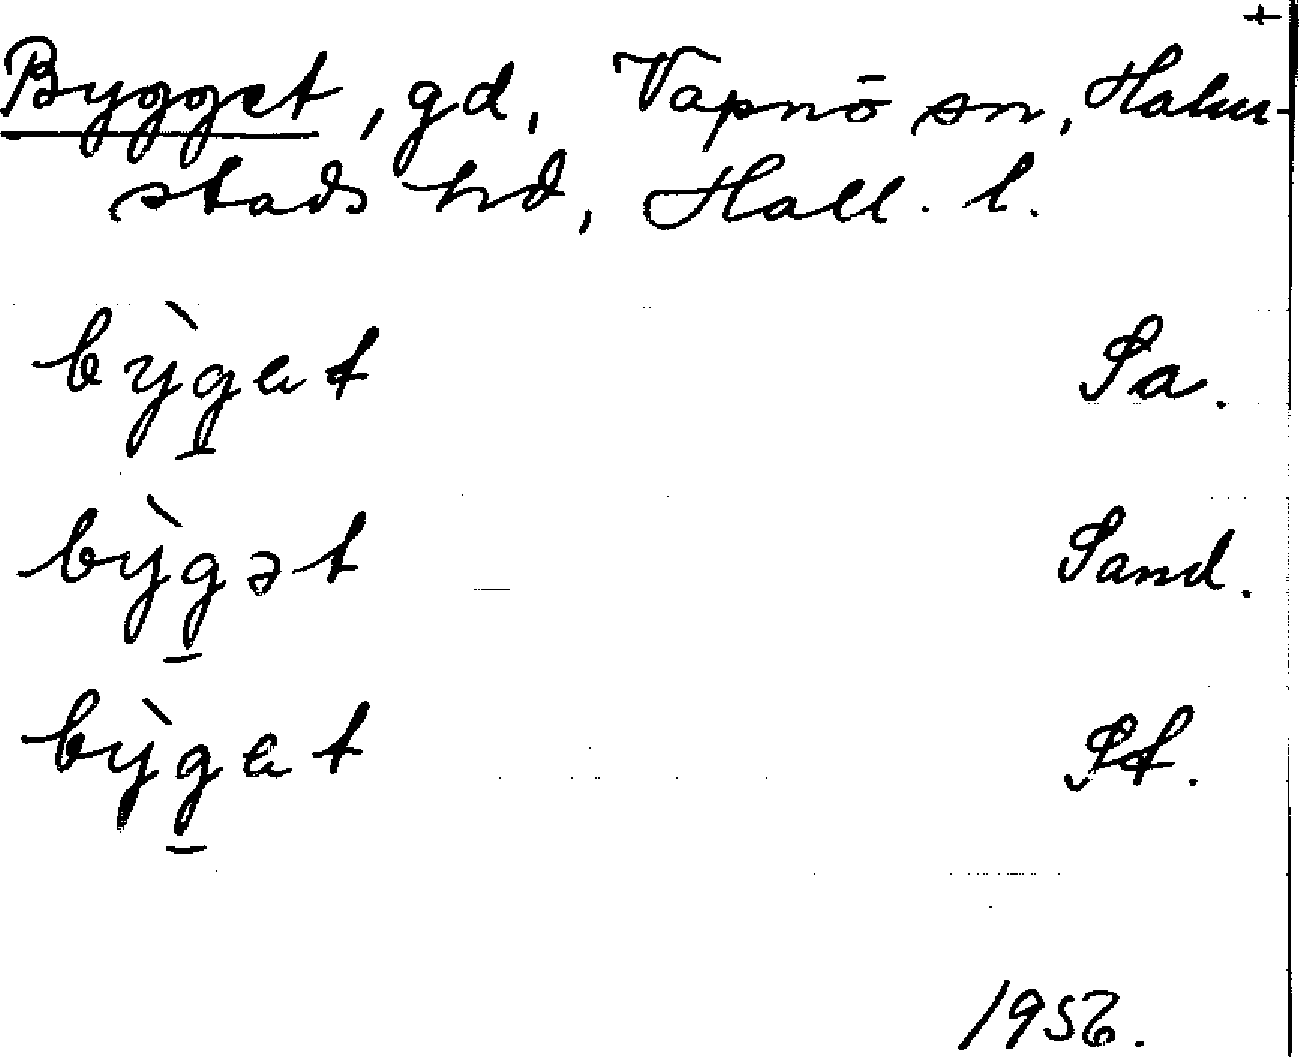 +
Bygget, gd, Vapnö sn, Halm-
stads hd, Hall. l.
bỳg̲et Sa.
bỳg̲ət Sand.
bỳg̲et St.
1956.